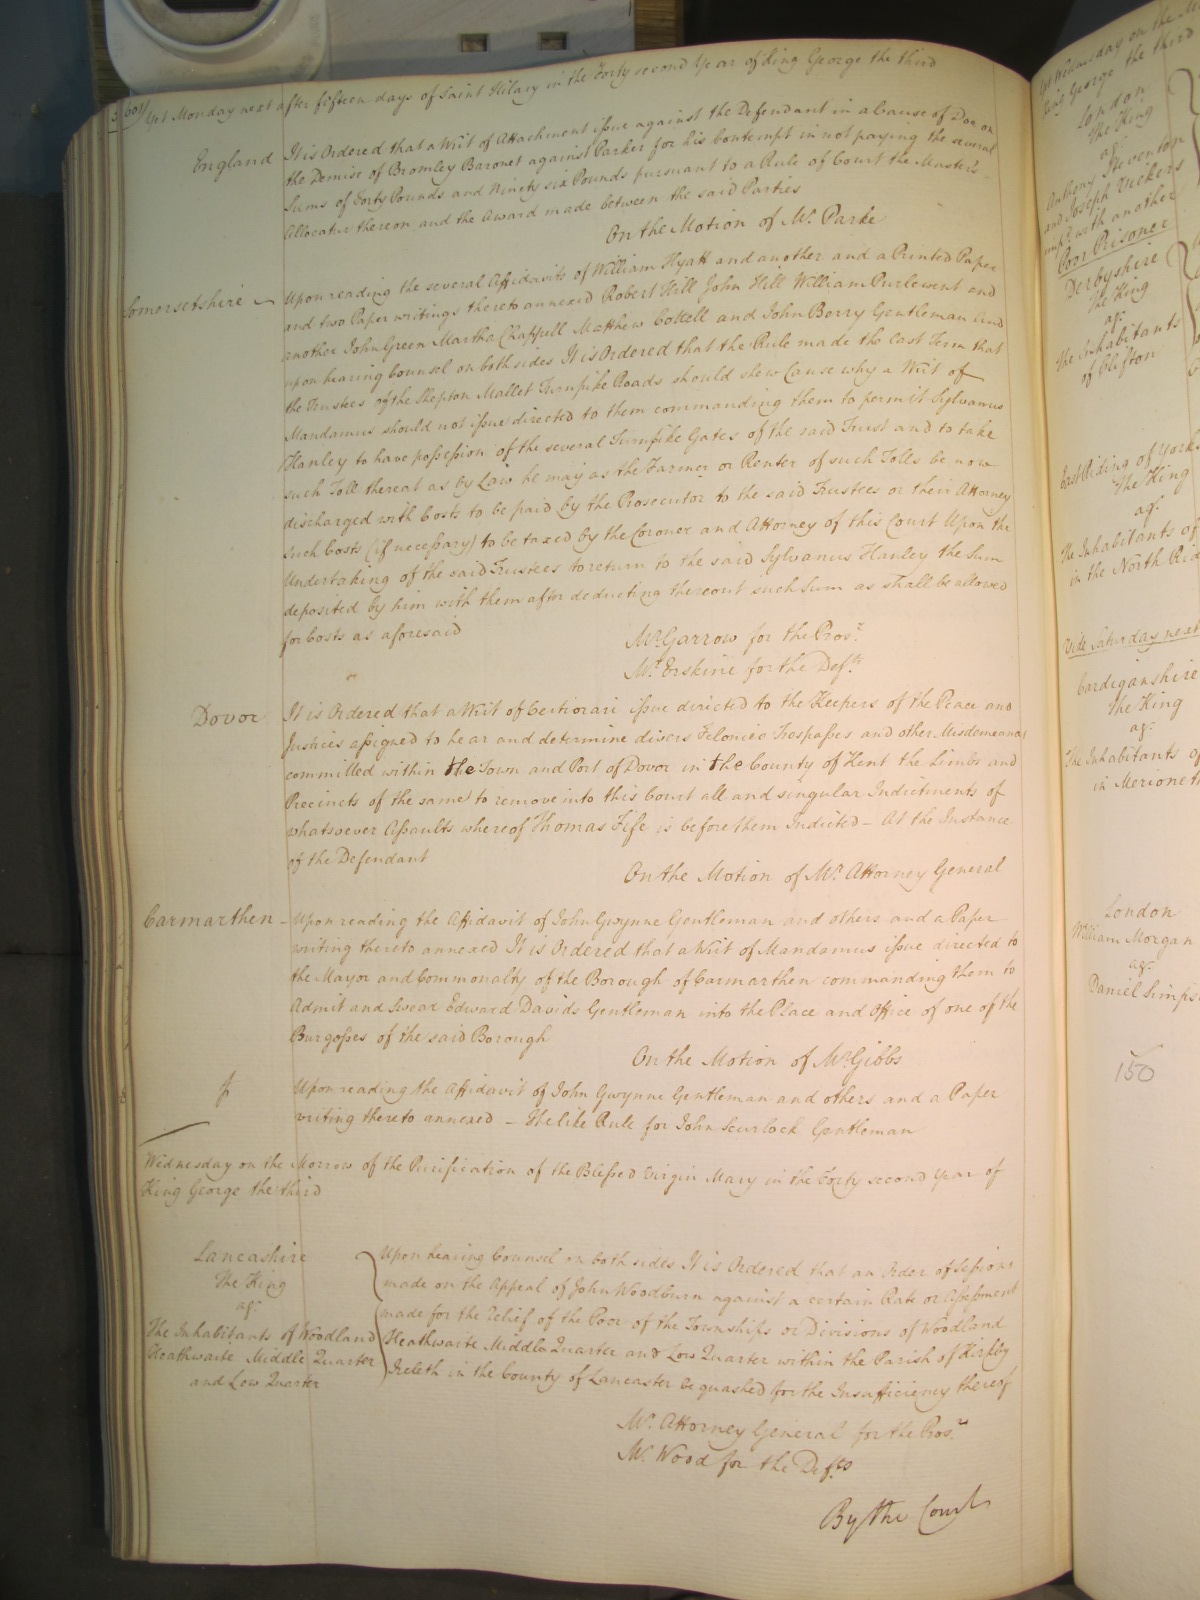 Yet Monday next after fifteen days of Saint Hilary in the Forty second Year of King George the third
England
It is Ordered that a Writ of Attachment issue against the Defendant in a Cause of Doe on
the Demise of Bromley Baronet against Parker for his Contempt in not paying the several
Sums of Forty Pounds and Ninety six Pounds pursuant to a Rule of Court the Master's
Allocatur thereon and the Award made between the said Parties
On the Motion of Mr. Parke
Somersetshire
Upon reading the several Affidavits of William Hyatt and another and a Printed Paper
and two Paper writings thereto annexed Robert Hill John Hill William Purlewent and
another John Green Martha Chappell Matthew Cottell and John Berry Gentleman And
upon hearing Counsel on both sides It is Ordered that the Rule made the last Term that
the Trustees of the Shepton Mallet Turnpike Roads should shew Cause why a Writ of
Mandamus should not issue directed to them commanding them to permit Sylvanus
Hanley to have possession of the several Turnpike Gates of the said Trust and to take
such Toll thereat as by Law he may as the Farmer or Renter of such Tolls be now
discharged with Costs to be paid by the Prosecutor to the said Trustees or their Attorney
such Costs (if necessary) to be taxed by the Coroner and Attorney of this Court Upon the
Undertaking of the said Trustees to return to the said Sylvanus Hanley the Sum
deposited by him with them after deducting thereout such Sum as shall be allowed
for Costs as aforesaid
Mr. Garrow for the Pros.r
Mr. Erskine for the Def.ts
Dovor
It is Ordered that a Writ of Certiorari issue directed to the Keepers of the Peace and
Justices assigned to hear and determine divers Felonies Trespasses and other Misdemeanors
committed within the Town and Port of Dovor in the County of Kent the Limbs and
Precincts of the same to remove into this Court all and singular Indictments of
whatsoever Assaults whereof Thomas Fife is before them Indicted – At the Instance
of the Defendant
On the Motion of Mr. Attorney General
Carmarthen
Upon reading the Affidavit of John Gwynne Gentleman and others and a Paper
writing thereto annexed It is Ordered that a Writ of Mandamus issue directed to
the Mayor and Commonalty of the Borough of Carmarthen commanding them to
Admit and Swear Edward Davids Gentleman into the Place and Office of one of the
Burgesses of the said Borough
On the Motion of Mr. Gibbs
Upon reading the Affidavit of John Gwynne Gentleman and others and a Paper
writing thereto annexed – The like Rule for John Scurlock Gentleman
Wednesday on the Morrow of the Purification of the Blessed Virgin Mary in the Forty second Year of
King George the third
Lancashire
The King
ag.t
The Inhabitants of Woodland
Heathwaite Middle Quarter
and Low Quarter
Upon hearing Counsel on both sides It is Ordered that an Order of Sessions
made on the Appeal of John Woodburn against a certain Rate or Assessment
made for the Relief of the Poor of the Townships or Divisions of Woodland
Heathwaite Middle Quarter and Low Quarter within the Parish of Kirkby
Ireleth in the County of Lancaster be quashed for the Insufficiency thereof
Mr. Attorney General for the Pros.r
Mr. Wood for the Def.ts
By the Court
Yet Wednesday on the
King George the third
London
The King
ag.t
Anthony Steventon
and Joseph Vickers
with another
Poor Prisoner
Derbyshire
The King
ag.t
The Inhabitants
of Clifton
East Riding of York
The King
ag.t
The Inhabitants of
in the North Rid
Vide Saturday next
Cardiganshire
The King
ag.t
The Inhabitants of
in Merioneth
London
William Morgan
ag.t
Daniel Simps
150